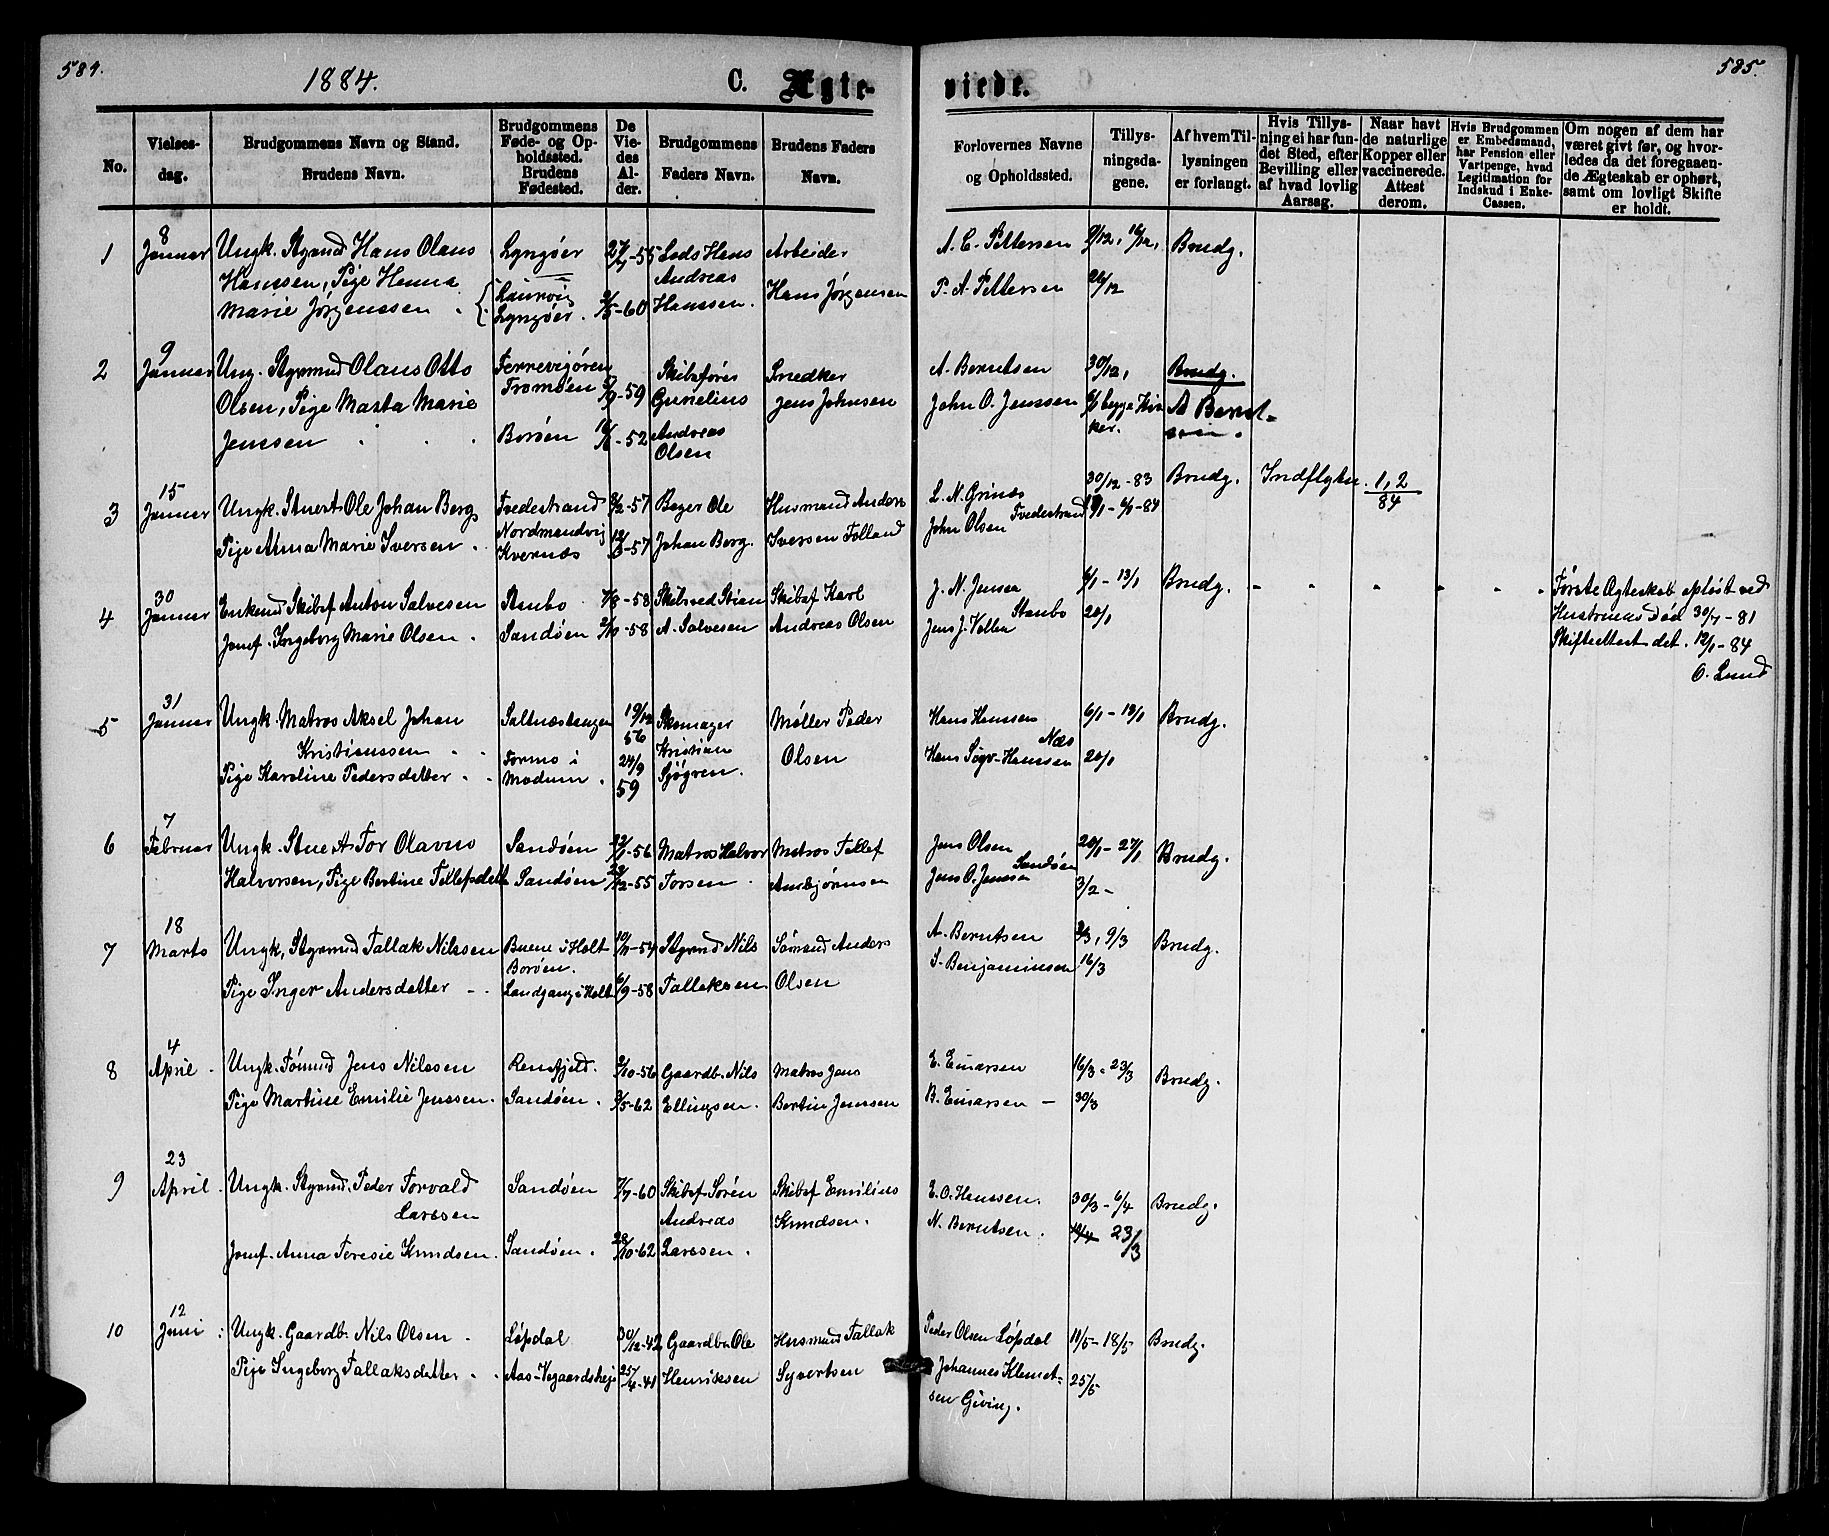 584.
1884.
C. Ægte-
viede.
585.
No.
Vielses-
dag.
Brudgommens Navn og Stand.
Brudens Navn.
Brudgommens
Føde- og Op-
holdssted.
Brudens
Fødested.
De
Vie-
des
Al-
der.
Brudgommens
Faders Navn.
Brudens Faders
Navn.
Forlovernes Navne
og Opholdssted.
Tillys-
ningsda-
gene.
Af hvem Til-
lysningen
er forlangt.
Hvis Tillys-
ning ei har fun-
det Sted, efter
Bevilling eller
af hvad lovlig
Aarsag.
Naar havt
de naturlige
Kopper eller
vaccinerede.
Attest
derom.
Hvis Brudgommen
er Embedsmand,
har Pension eller
Vartpenge, hvad
Legitimation for
Indskud i Enke-
Cassen.
Om nogen af dem har
været givt før, og hvor-
ledes da det foregaaen-
de Ægteskab er ophørt,
samt om lovligt Skifte
er holdt.
1
8
Januar
Ungk. Styrmd Hans Olaus
Hanssen, Pige Hanna
Marie Jørgenssen
Lyngøer
Laurvig
Lyngøer.
-55
-60
Lods Hans
Andreas
Hanssen.
Arbeider
Hans Jørgensen
A. C. Pettersen
P. A. Pettersen
26/12
Brudg.
2
9
Januar
Ung. Styrmd Olaus Otto
Olsen, Pige Marta Marie
Jenssen
Tromøen
-59
Borøen
-52
Skibsfører
Gunelius
Andreas
Olsen
Snedker
Jens Johnsen
A. Berntsen
John O. Jenssen
30/12,
begge Kir
ker.
Brudg.
A Bernt-
sen.
3
15
Januar
Ungk. Stuert Ole Johan Berg
Pige Anna Marie Iversen
Tvedestrand
-57
Nordmandvig
Kvernæs
-57
Bøger Ole
Johan Berg.
Husmand Anders
Iversen Folland
L. N. Grinæs
John Olsen Tvedestrand
30/12-83
6/1-84
Brudg.
Indflyttn.
1, 2
84
4
30
Januar
Enkemd Skibsf Anton Salvesen
Jomf. Ingeborg Marie Olsen.
Staubo
-58
Sandøen
-58
A. Salvesen
Skibsf Karl
Andreas Olsen
J. N. Jensen
Jens J. Vollen Staubo
6/1 - 13/1
20/1
Brudg.
Første Ægteskab opløst ved
Hustruens Død 30/7-81
Skifteattest det. 12/1-84
O. Lund
5
31
Januar
Ungk. Matros Aksel Johan
Kristianssen
Pige Karoline Pedersdatter
Saltnæstangen
19/12
56
Formo i
Modum.
24/9
59
Skomager
Kristian
Sjøgren.
Møller Peder
Olsen
Hans Hanssen
Næs
Hans Sigv. Hanssen
6/1 - 13/1
20/1
Brudg.
6
7
Februar
Ungk. Stuert Tor Olavus
Halvorsen, Pige Bertine Tellefsdatt
Sandøen
-56
Sandøen
-55
Matros Halvor
Torsen
Matros Tellef
Ansbjørnsen
Jens Olsen
Sandøen
Jens O. Jensen
20/1 - 27/1
3/2 -
Brudg.
7
18
Marts
Ungk, Styrmd Tallak Nilssen
Pige Inger Andersdatter
Buene i Holt
Borøen.
Landgang i Holt
-54
6/9-58
Styrmd Nils
Tallaksen
Sømand Anders
Olsen
A. Berntsen
S. Benjaminsen
9/3
16/3
Brudg.
8
4
April
Ungk. Tømmd Jens Nilssen
Pige Martine Emilie Jenssen.
Rensfjeld.
-56
Sandøen.
-62
Gaardb. Nils
Ellingsen.
Matros Jens
Bertin Jensen
E. Einarsen
B. Einarsen -
16/3 - 23/3
30/3
Brudg.
9
23
April
Ungk. Styrmd. Peder Torvald
Larssen
Jomf. Anna Teresie Knudsen.
Sandøen
-60
Sandøen.
28/10-62
Skibsf Søren
Andreas
Larssen.
Skibsf Emilius
Knudsen.
E. O. Hanssen.
N. Berntsen.
30/3 - 6/4
23/3
Brudg.
10
12
Juni
Ungk. Gaardb. Nils Olsen
Pige Ingeborg Tallaksdatter
Løpdal
30/12-42
Aas-Vegaardsheje
25/4-41
Gaardbr. Ole
Henriksen
Husmand Tallak
Syvertsen
Peder Olsen Løpdal
Johannes Klemet-
sen Giving.
11/5 - 18/5
25/5
Brudg.